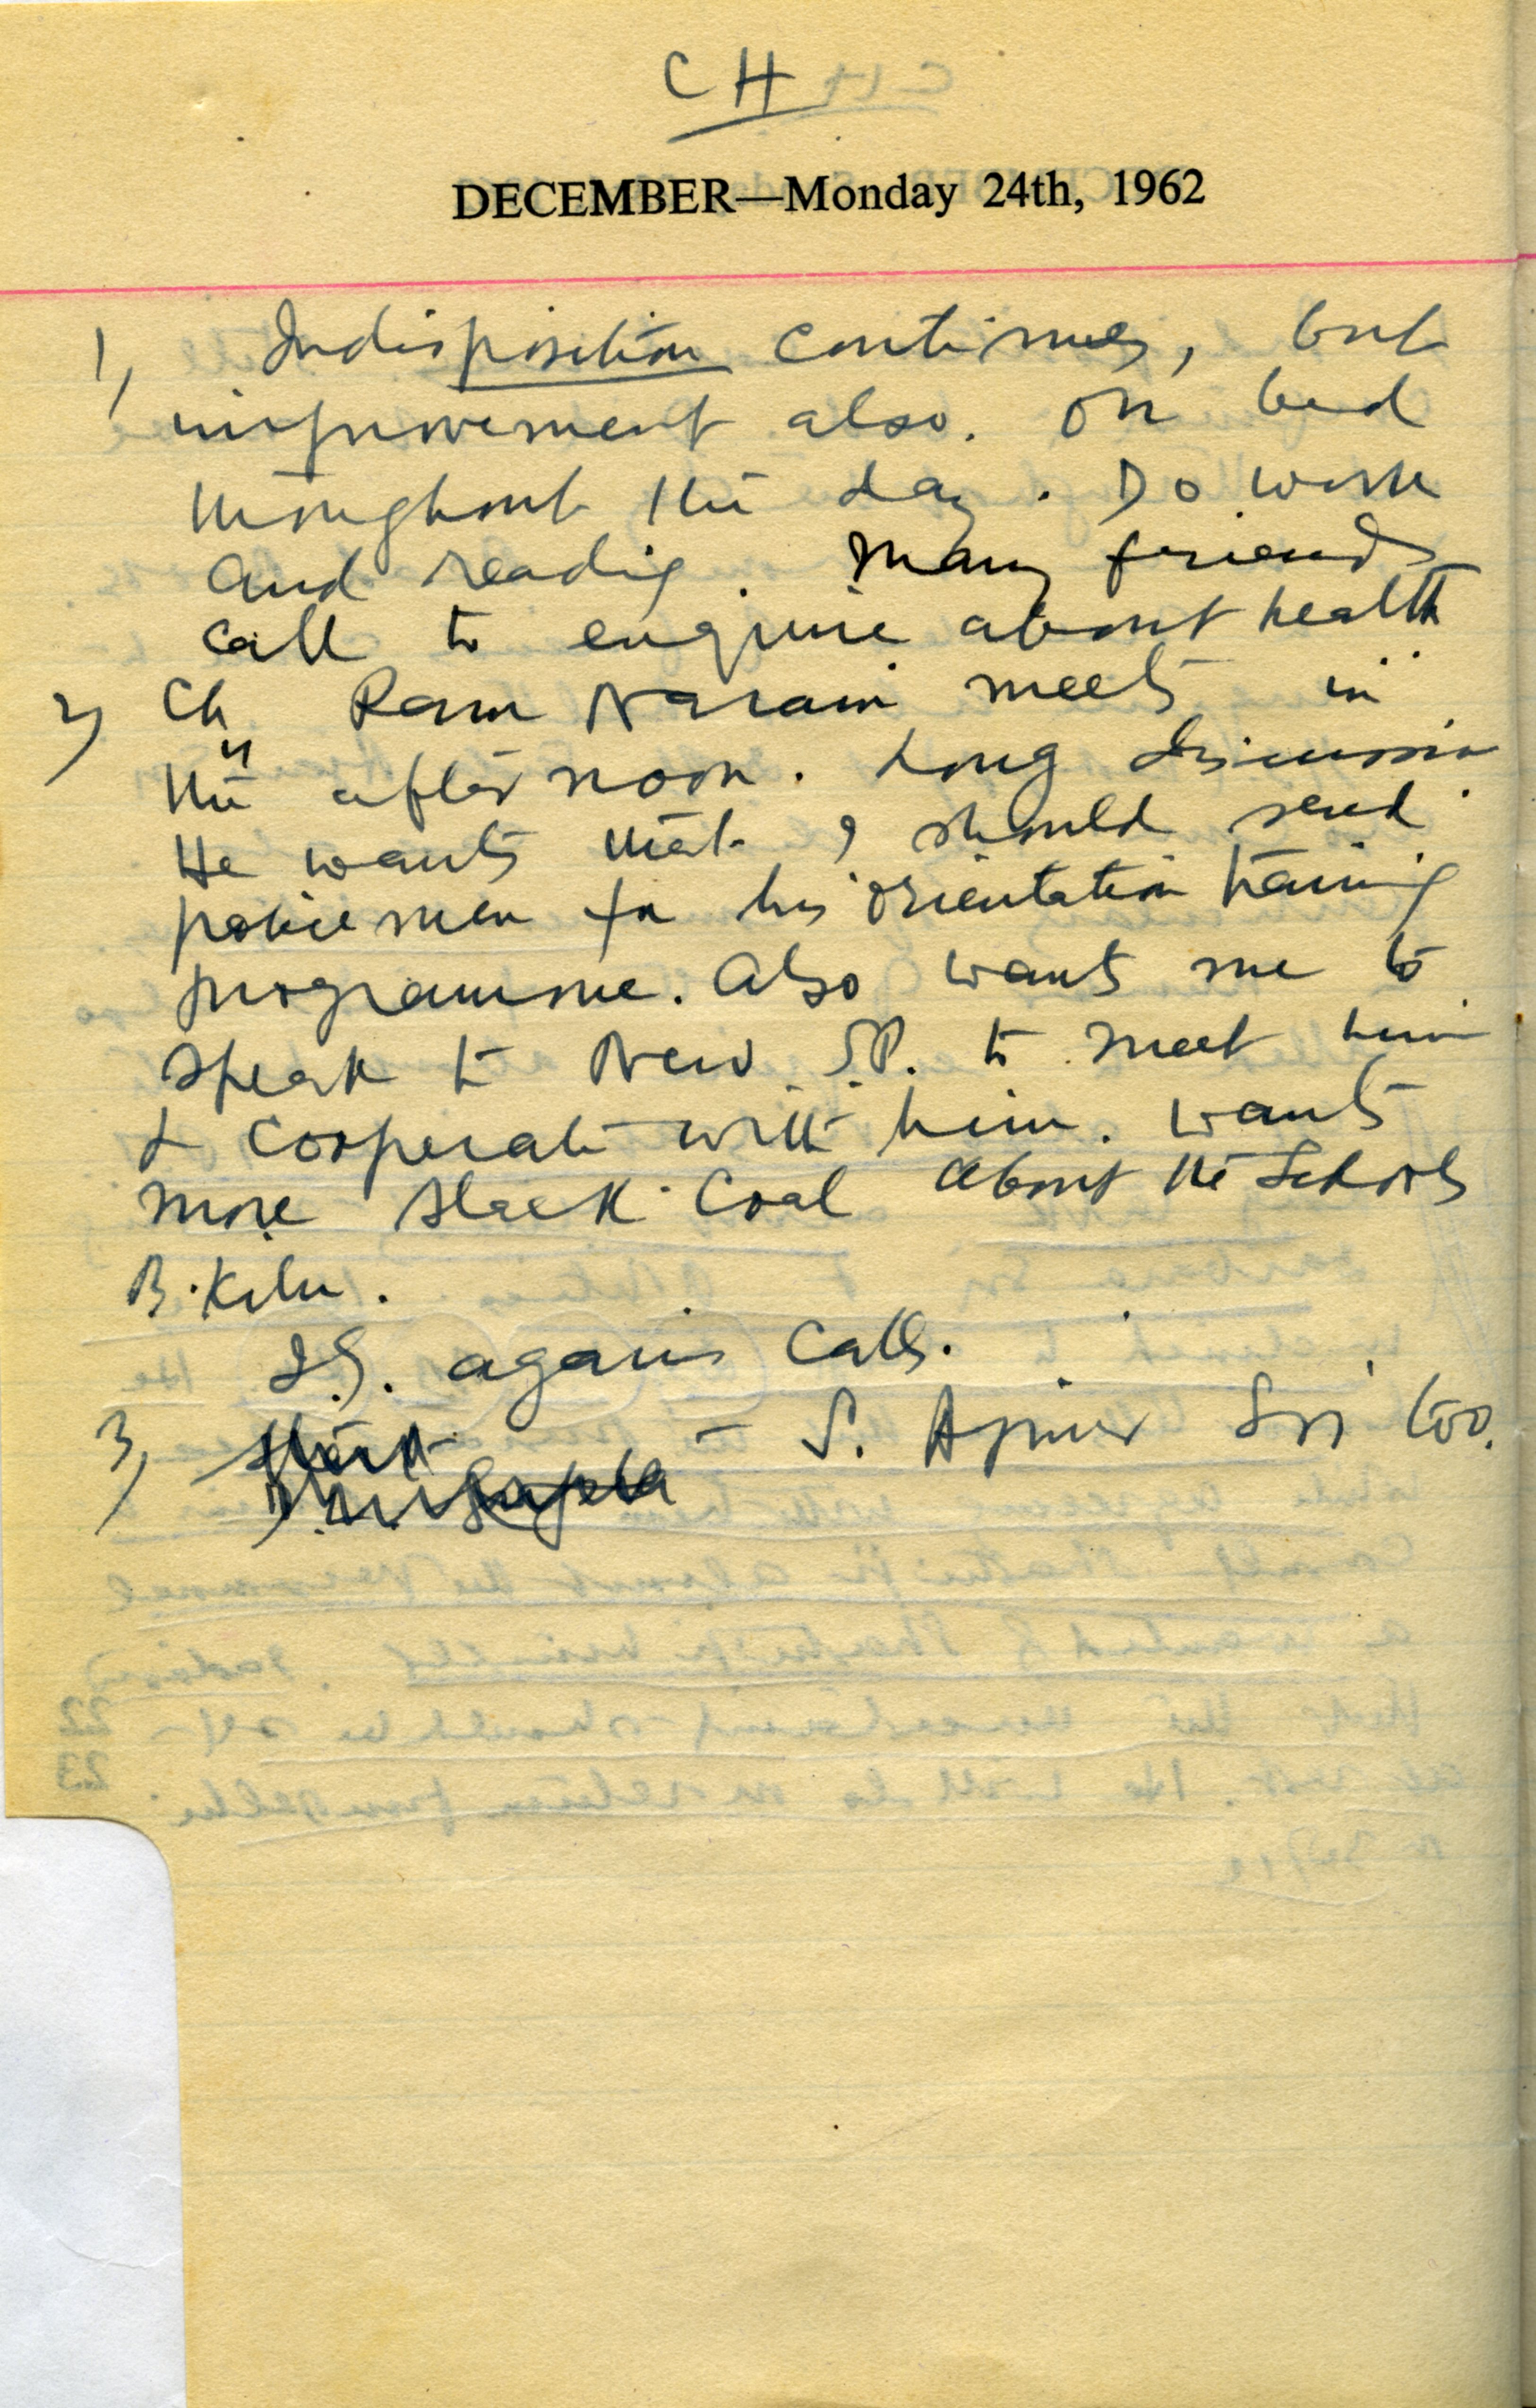 CH
DECEMBER—Monday 24th, 1962
1, Indisposition continues, but
improvement also. On bed
throughout the day. Do work
and reading. Many friends
call to enquire about health
2, Ch Ram Narain meets in
the afternoon. Long discussion.
He wants that I should send
policemen for his orientation training
programme. Also wants me to
speak to New S.P. to meet him
& cooperate with him. Wants
more slack coal about the Schools
B. Kiln.
I.G. again calls.
3, S. Ajmer Sri too.